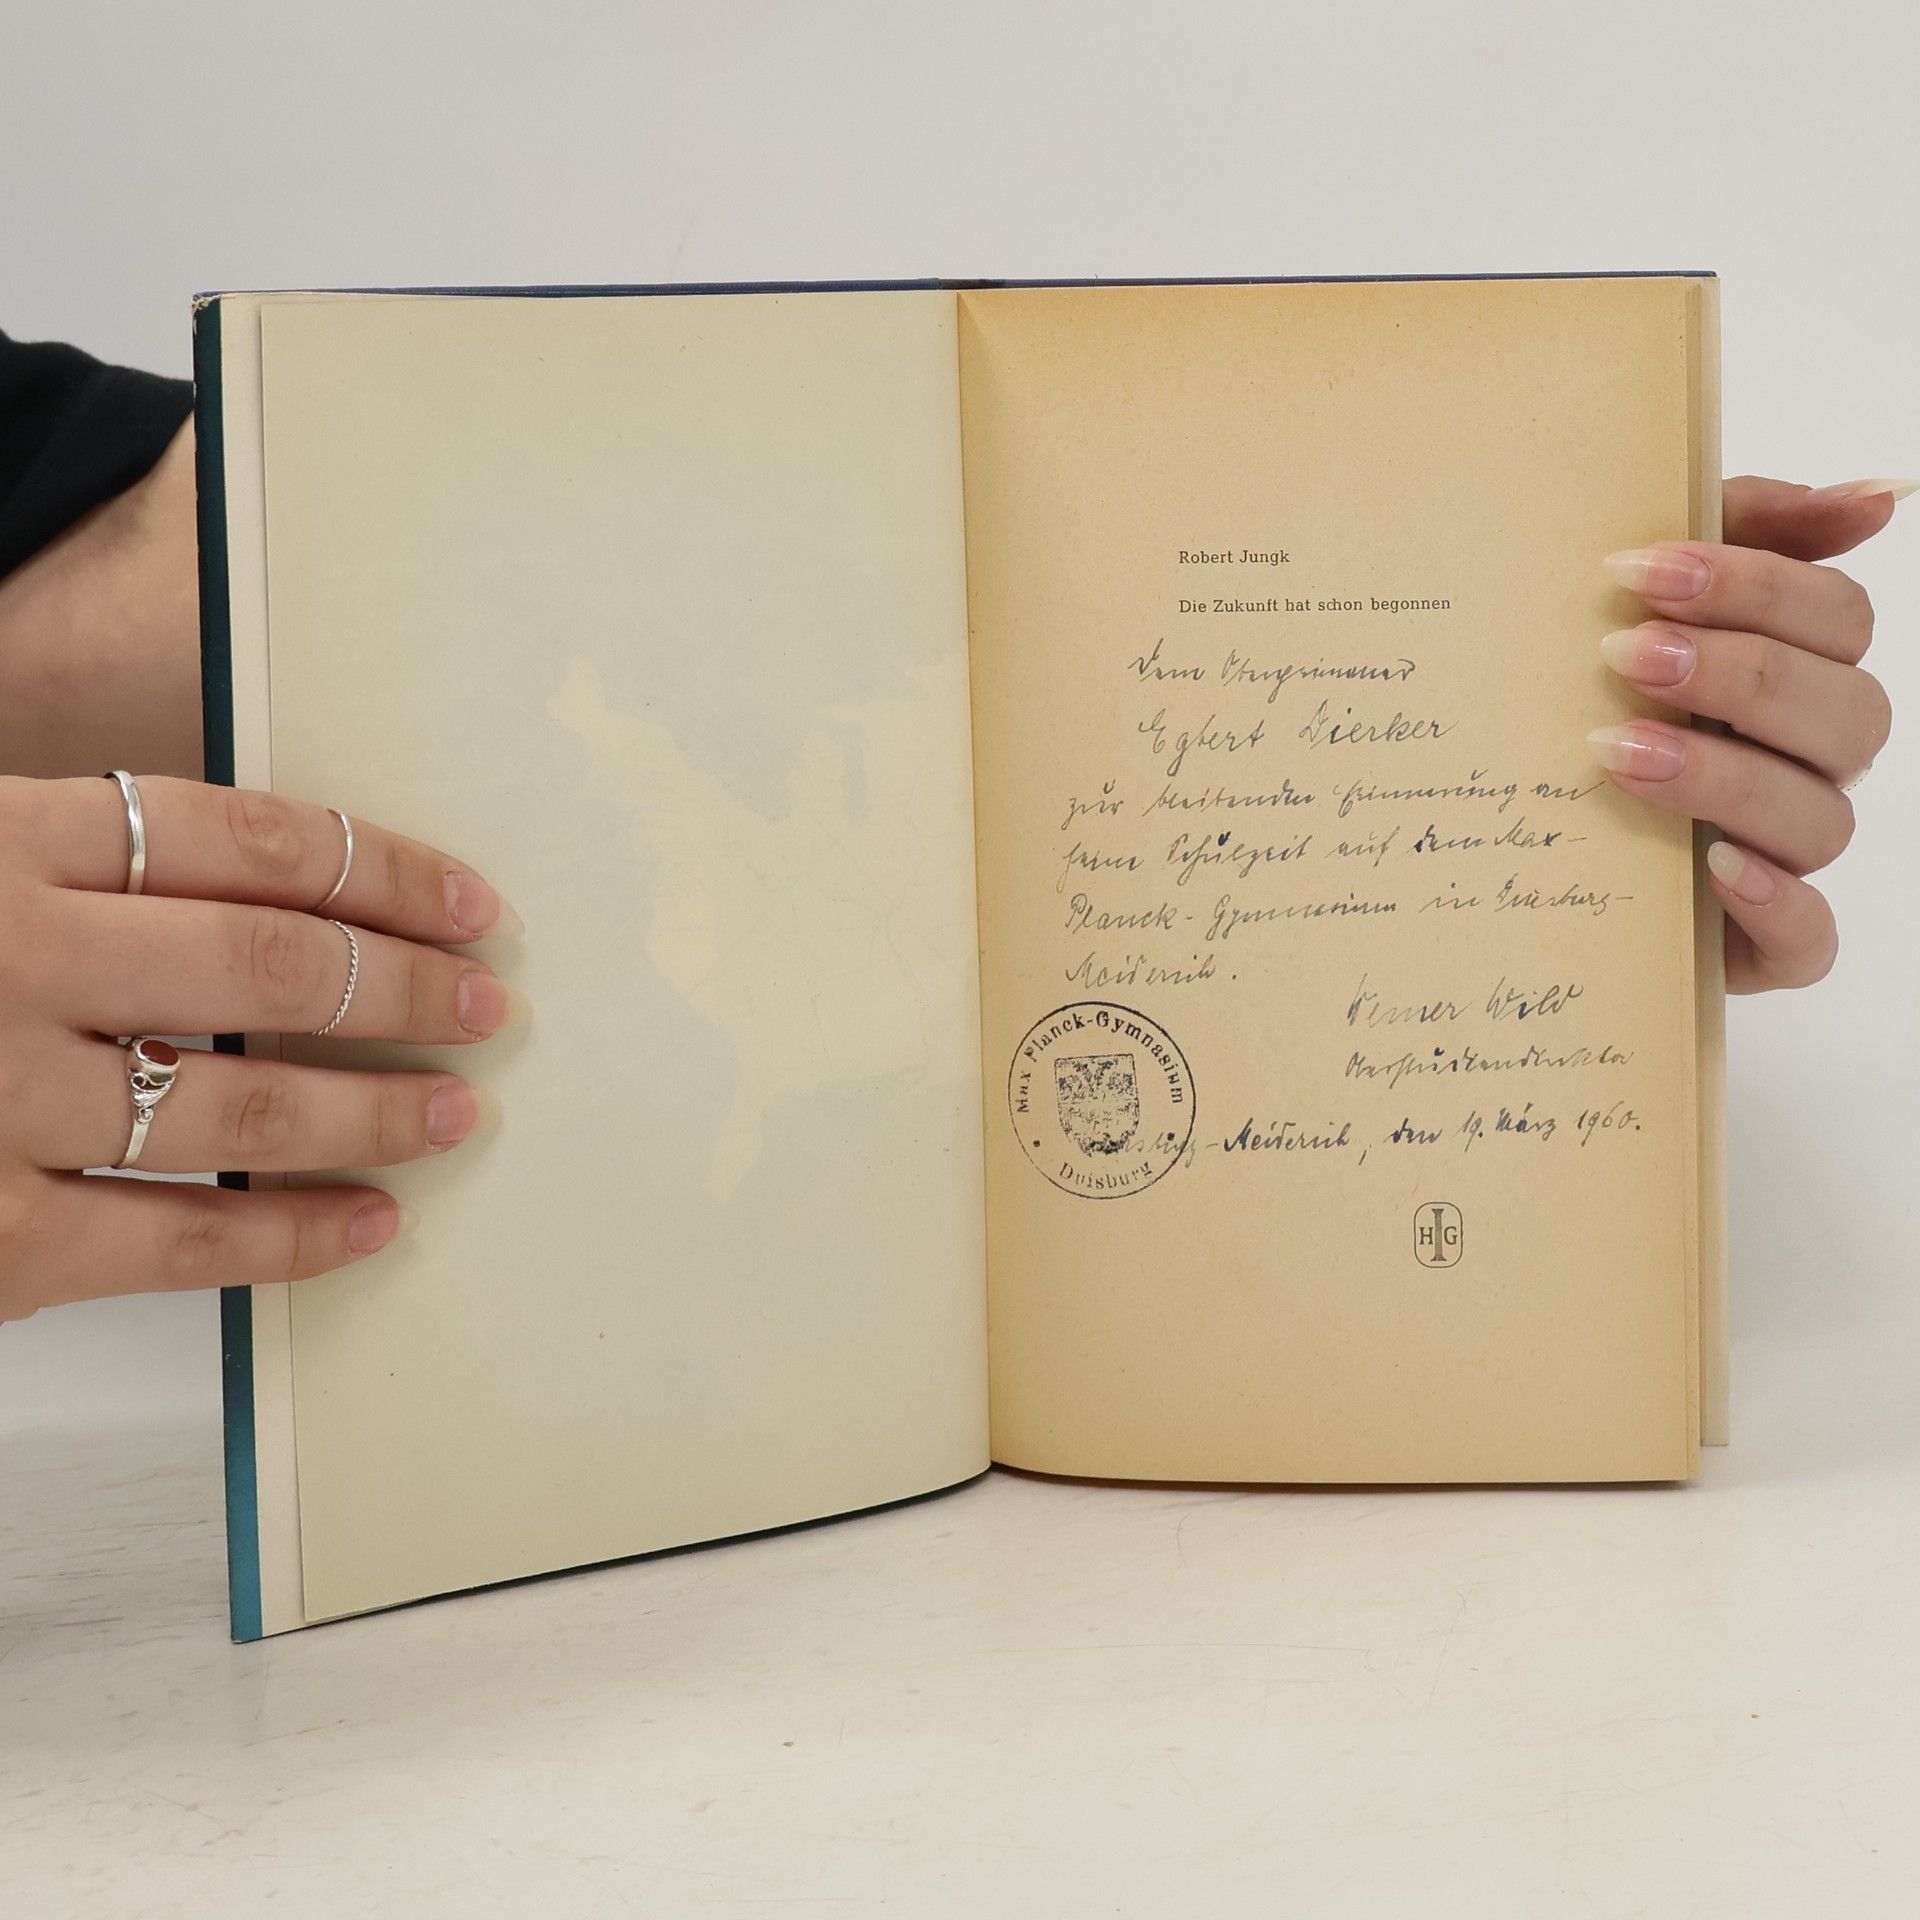 Robert Jungk
Die Zukunft hat schon begonnen
Dem Oberprimaner
Egbert Dierker
zur bleibenden Erinnerung an
seine Schulzeit auf dem Max-
Planck-Gymnasium in Duisburg-
Meiderich.
Werner Wild
Oberstudiendirektor
Duisburg-Meiderich, den 19. März 1960.
Max Planck-Gymnasium
Duisburg
HIG